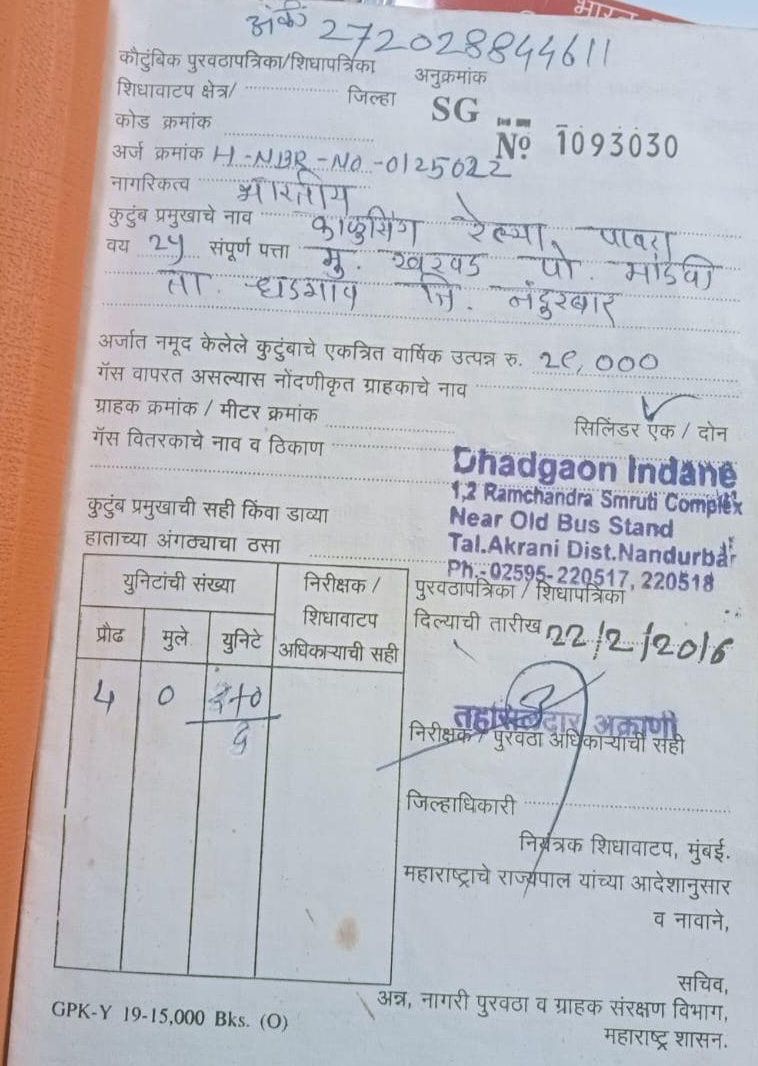 भारत
अंकी 272028844611
कौटुंबिक पुरवठापत्रिका/शिधापत्रिका
अनुक्रमांक
शिधावाटप क्षेत्र/ जिल्हा
SG
कोड क्रमांक
№ 1093030
अर्ज क्रमांक H-NBR-NO-0125022
नागरिकत्व भारतीय
कुटुंब प्रमुखाचे नाव रेल्या पावरा
वय 25 संपूर्ण पत्ता मु. खरवड पो. मांडवी
ता. धडगांव जि. नंदुरबार
अर्जात नमूद केलेले कुटुंबाचे एकत्रित वार्षिक उत्पन्न रु. 000
गॅस वापरत असल्यास नोंदणीकृत ग्राहकाचे नाव
ग्राहक क्रमांक / मीटर क्रमांक
सिलिंडर एक / दोन
गॅस वितरकाचे नाव व ठिकाण
Dhadgaon Indane
1,2 Ramchandra Smruti Complex
Near Old Bus Stand
Tal.Akrani Dist.Nandurbar
Ph.-02595-220517, 220518
कुटुंब प्रमुखाची सही किंवा डाव्या
हाताच्या अंगठ्याचा ठसा
युनिटांची संख्या
निरीक्षक /
शिधावाटप
अधिकाऱ्याची सही
प्रौढ मुले युनिटे
4 0 +0
पुरवठापत्रिका / शिधापत्रिका
दिल्याची तारीख 22/2/2016
तहसिलदार अक्राणी
निरीक्षक / पुरवठा अधिकाऱ्याची सही
जिल्हाधिकारी
नियंत्रक शिधावाटप, मुंबई.
महाराष्ट्राचे राज्यपाल यांच्या आदेशानुसार
व नावाने,
सचिव,
अन्न, नागरी पुरवठा व ग्राहक संरक्षण विभाग,
महाराष्ट्र शासन.
GPK-Y 19-15,000 Bks. (O)